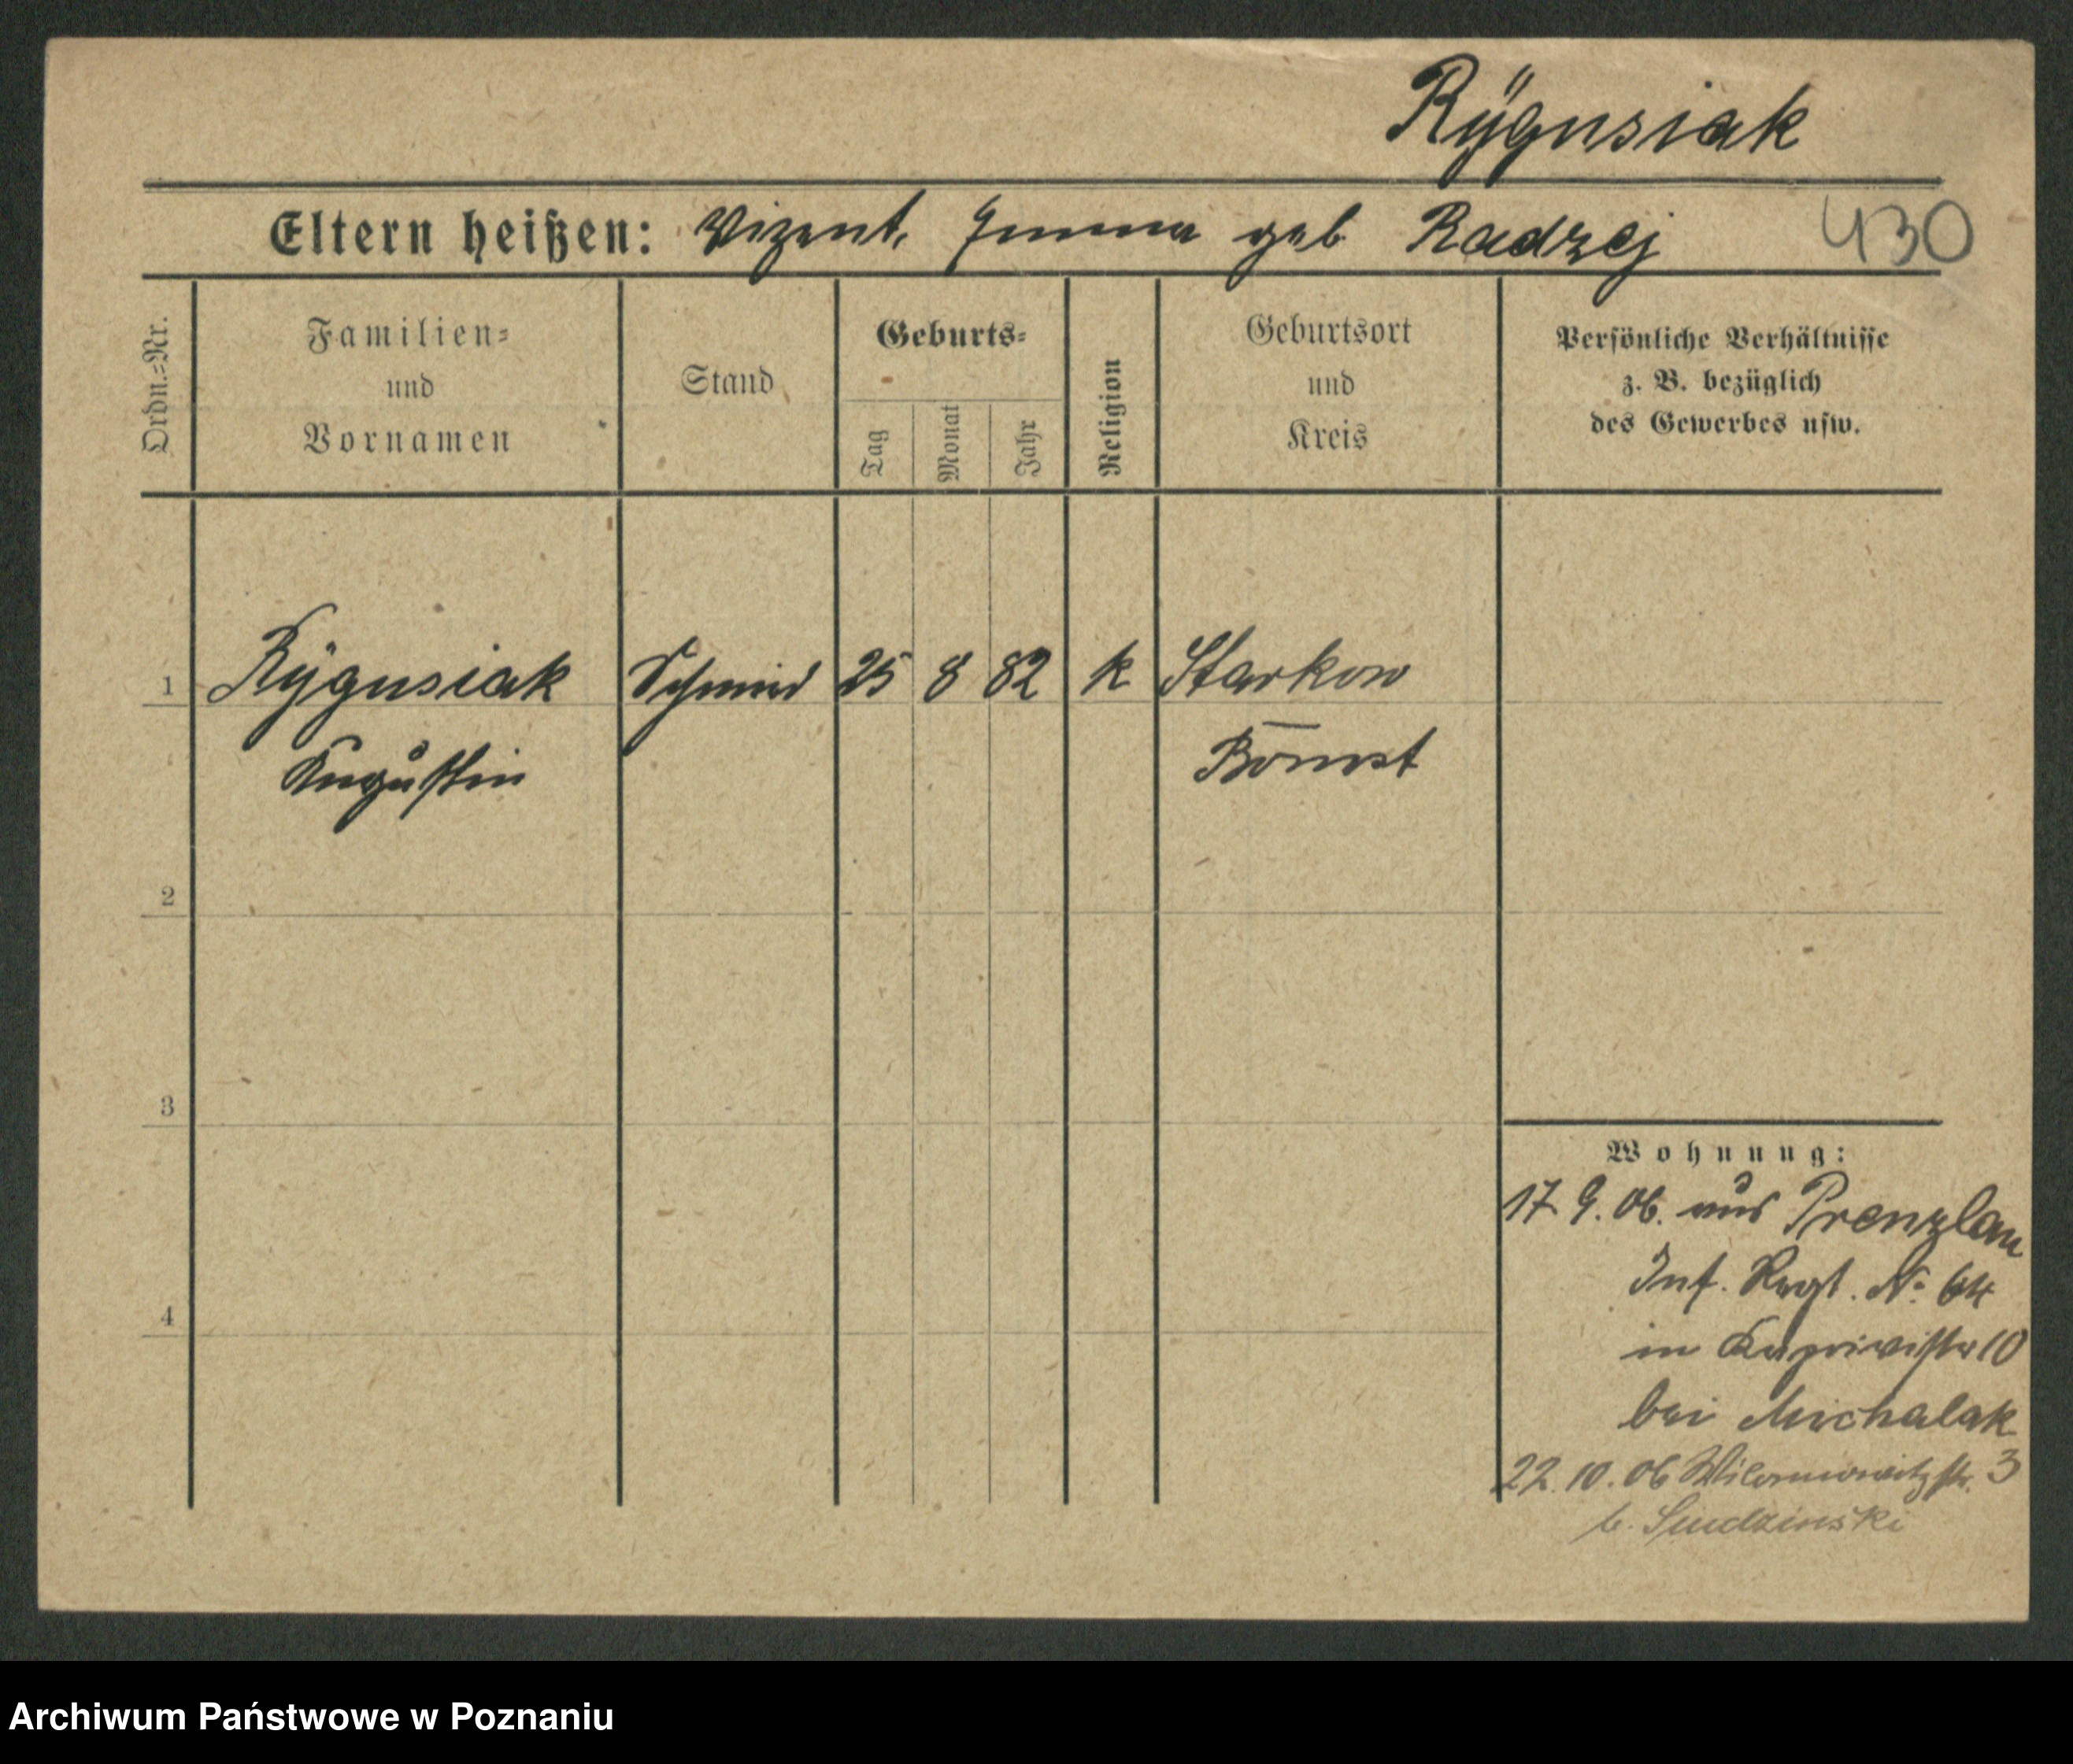 Rÿgusiak
Eltern heißen: Vizent, geb Radzej 430
Ordn.=Nr.
Familien=
und
Vornamen
Stand
Geburts=
Tag
Monat
Jahr
Religion
Geburtsort
und
Kreis
Persönliche Verhältnisse
z. B. bezüglich
des Gewerbes usw.
1 Rÿgusiak Schmied 25 8 82 k Starkow
Augustin Bomst
2
3
4
Wohnung:
17. 9. 06. aus Prenzlau
Inf. Regt. No 64
in Kaprivistr 10
bei Michalak
22. 10. 06 str. 3
b.
Archiwum Państwowe w Poznaniu